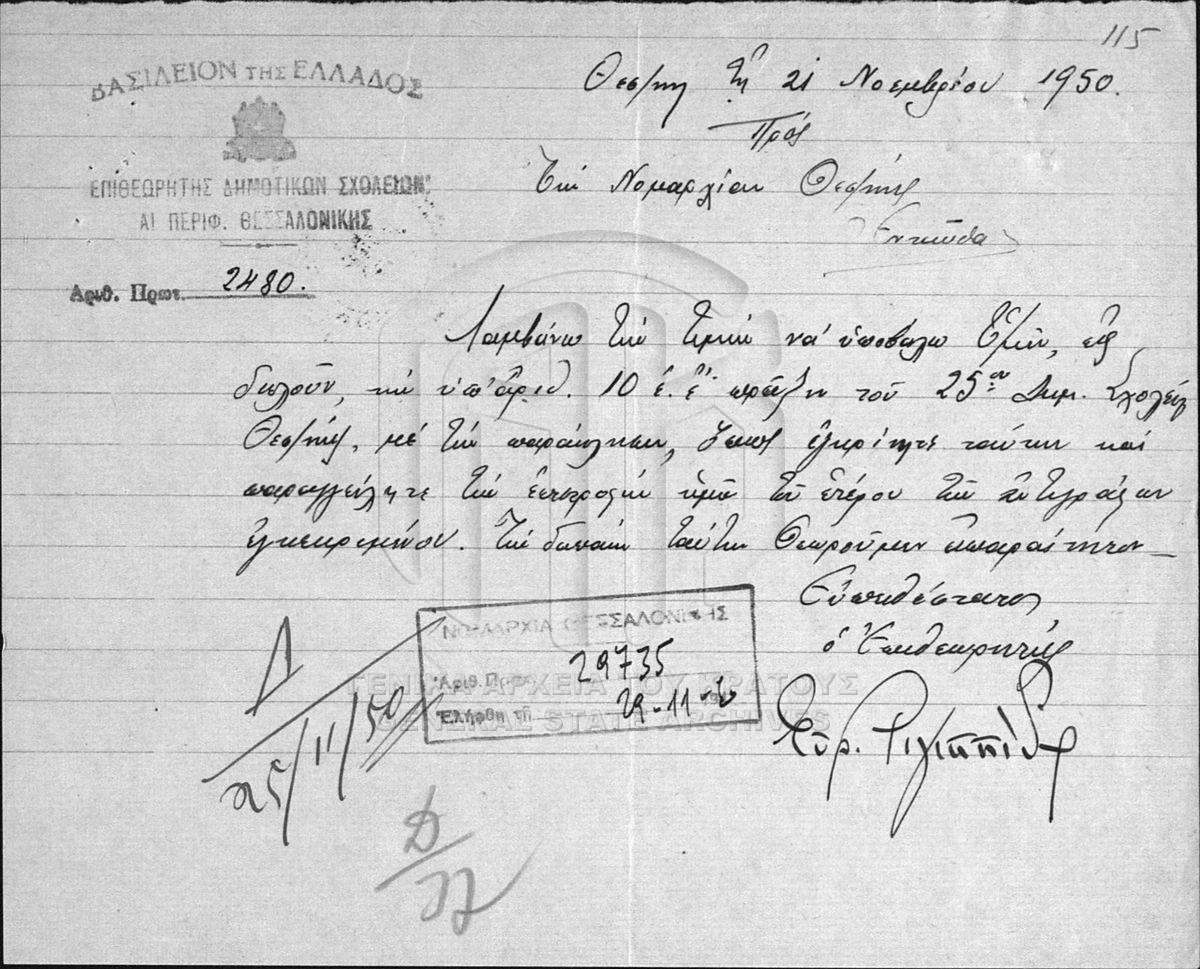 115
ΒΑΣΙΛΕΙΟΝ ΤΗΣ ΕΛΛΑΔΟΣ
ΕΠΙΘΕΩΡΗΤΗΣ ΔΗΜΟΤΙΚΩΝ ΣΧΟΛΕΙΩΝ
ΑΙ ΠΕΡΙΦ. ΘΕΣΣΑΛΟΝΙΚΗΣ
Αριθ. Πρωτ. 2480.
Θεσ/νίκη τῇ 21 Νοεμβρίου 1950.
Πρός
Τὴν Νομαρχίαν Θεσ/νίκης
Ἐνταῦθα
Λαμβάνω τὴν τιμὴν νὰ ὑποβάλω Ὑμῖν, εἰς
διπλοῦν, τὴν ὑπ' ἀριθ. 10 ἐ. ἔ. πρᾶξιν τοῦ 25ου Δημ. Σχολείου
Θεσ/νίκης, μὲ τὴν παράκλησιν, ὅπως ἐγκρίνητε ταύτην καὶ
παραγγείλητε τὴν ἐπιστροφὴν ἡμῖν τοῦ ἑτέρου τῶν ἀντιγράφων
ἐγκεκριμένου. Τὴν δαπάνην ταύτην θεωροῦμεν ἀπαραίτητον
Εὐπειθέστατος
ὁ Ἐπιθεωρητής
ΝΟΜΑΡΧΙΑ ΘΕΣΣΑΛΟΝΙΚΗΣ
Ἀριθ. Πρωτ. 29735
Ἐλήφθη τῇ 29-11-50
Δ
25/11/50
ΓΕΝΙΚΑ ΑΡΧΕΙΑ ΤΟΥ ΚΡΑΤΟΥΣ
GENERAL STATE ARCHIVES